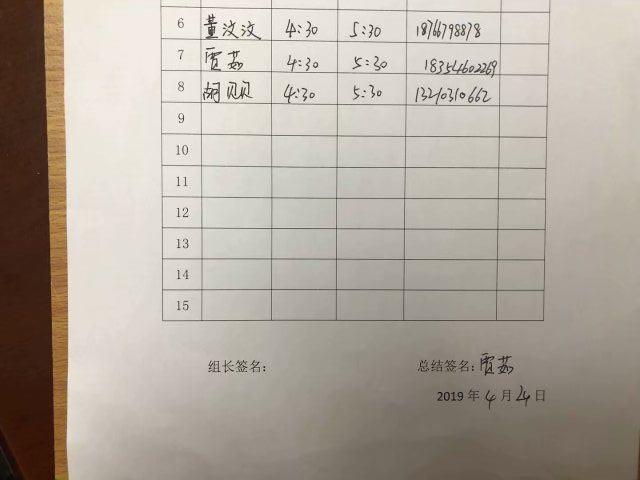 6 董汶汶 4:30 5:30 18766798878
7 贾茹 4:30 5:30 18354602269
8 胡贝贝 4:30 5:30 13210310662
9
10
11
12
13
14
15
组长签名： 总结签名：贾茹
2019 年 4 月 24 日